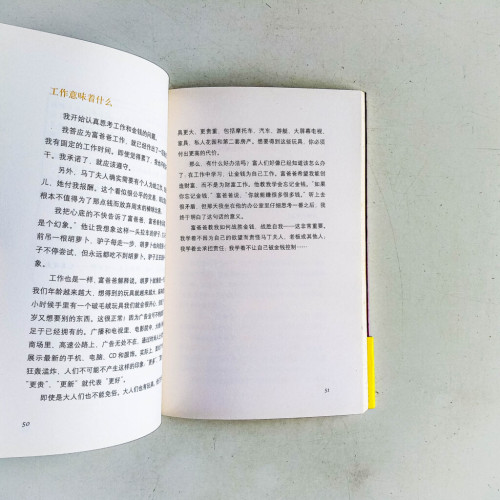 工作意味着什么
我开始认真思考工作和金钱的问题。
我答应为富爸爸工作，就已经作出了一项
我有固定的工作时间，即使觉得累了，
了，我承诺了，就应该遵守。
另外，马丁夫人确实需要有个人为她工
儿，她付我报酬。这个看似很公平的交易，
根本不值得为了那点钱而放弃周末
我把心底的不快告诉了富爸爸，富爸爸
是个幻象。”他让我想象这样一头拉木车的驴子，
前吊一根胡萝卜，驴子每走一步，胡萝卜
子不停尝试，但永远都吃不到胡萝卜。
工作也是一样，富爸爸解释说。胡萝卜
我们年龄越来越大，想得到的玩具就越来越
小时候手里有一个破毛绒玩具我们就会很开心，
岁又想要别的东西。这很正常！因为广告会
足于已经拥有的。广播和电视里，电影院中，
商场里、高速公路上，广告无处不在，
展示最新的手机、电脑、CD 和服饰。实际上，
狂轰滥炸，人们不可能不产生这样的印象，“更
“更贵”、“更新”就代表“更好”。
即使是大人们也不能免俗。大人们也有玩具，
50
具更大、更贵重，包括摩托车、汽车、游艇、大屏幕电视、
家具、私人花园和第二套房产。想要得到这些玩具，你必须
付出更高的代价。
那么，有什么好办法吗？富人们好像已经知道该怎么办
了，在工作中学习，让金钱为自己工作。富爸爸希望我能创
造财富，而不是为财富工作。他教我学会忘记金钱。“如果
你忘记金钱，”富爸爸说：“你就能赚很多很多钱。”听上去
很矛盾，但那天我坐在他的办公室里仔细思考一番之后，我
终于明白了这句话的意义。
富爸爸教我如何战胜金钱、战胜自我——这非常重要。
我学着不将为自己的欲望而责怪马丁夫人、老板或其他人，
我学着去承担责任，我学着不让自己被金钱控制……
51